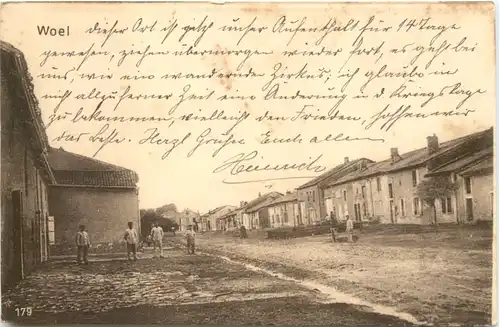 Woel
dieser Ort ist jetzt unser Aufenthalt für 14 Tage
gewesen, ziehen übermorgen wieder fort, es geht bei
uns, wie ein wandernder Zirkus; ich glaube in
nicht allzuferner Zeit eine Änderung in d. Kriegslage
zu bekommen, vielleicht den Frieden, hoffen wir
das Beste. Herzl. Grüße Euch allen
Heinrich
179